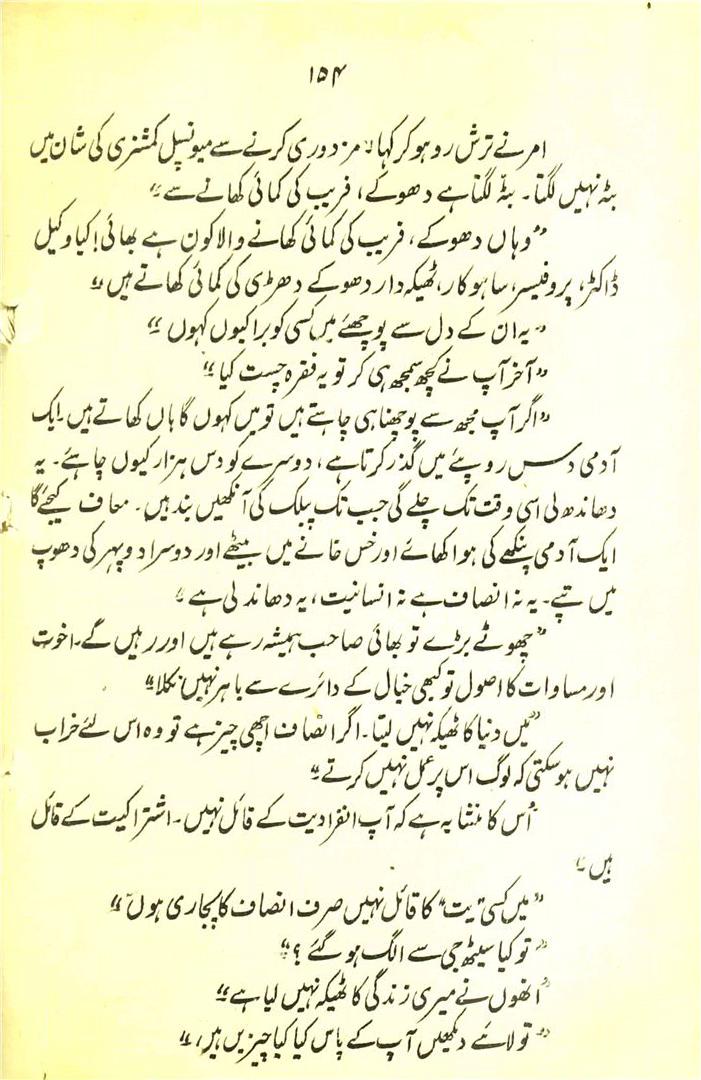 ۱۵۴
امر نے ترش رو ہو کر کہا "مزدوری کرنے سے میونسپل کمشنری کی شان میں
بٹہ نہیں لگتا۔ بٹہ لگتا ہے دھوکے، فریب کی کمائی کھانے سے"
"وہاں دھوکے، فریب کی کمائی کھانے والا کون ہے بھائی! کیا وکیل
ڈاکٹر، پروفیسر، ساہوکار، ٹھیکہ دار دھوکے دھڑی کی کمائی کھاتے ہیں"
"یہ ان کے دل سے پوچھئے میں کسی کو برا کیوں کہوں"
"آخر آپ نے کچھ سمجھ ہی کر تو یہ فقرہ چست کیا"
"اگر آپ مجھ سے پوچھنا ہی چاہتے ہیں تو میں کہوں گا ہاں کھاتے ہیں۔ ایک
آدمی دس روپئے میں گذر کرتا ہے، دوسرے کو دس ہزار کیوں چاہئے۔ یہ
دھاندھلی اسی وقت تک چلے گی جب تک پبلک کی آنکھیں بند ہیں۔ معاف کیجئے گا
ایک آدمی پنکھے کی ہوا کھائے اور خس خانے میں بیٹھے اور دوسرا دوپہر کی دھوپ
میں تپے۔ یہ نہ انصاف ہے نہ انسانیت، یہ دھاندلی ہے"
"چھوٹے بڑے تو بھائی صاحب ہمیشہ رہے ہیں اور رہیں گے۔ اخوت
اور مساوات کا اصول تو کبھی خیال کے دائرے سے باہر نہیں نکلا"
"میں دنیا کا ٹھیکہ نہیں لیتا۔ اگر انصاف اچھی چیز ہے تو وہ اس لئے خراب
نہیں ہو سکتی کہ لوگ اس پر عمل نہیں کرتے"
"اُس کا منشا یہ ہے کہ آپ انفرادیت کے قائل نہیں۔ اشتراکیت کے قائل
ہیں"
"میں کسی "یت" کا قائل نہیں صرف انصاف کا پجاری ہوں"
"تو کیا سیٹھ جی سے الگ ہو گئے؟"
"انھوں نے میری زندگی کا ٹھیکہ نہیں لیا ہے"
"تو لائے دیکھیں آپ کے پاس کیا کیا چیزیں ہیں،"